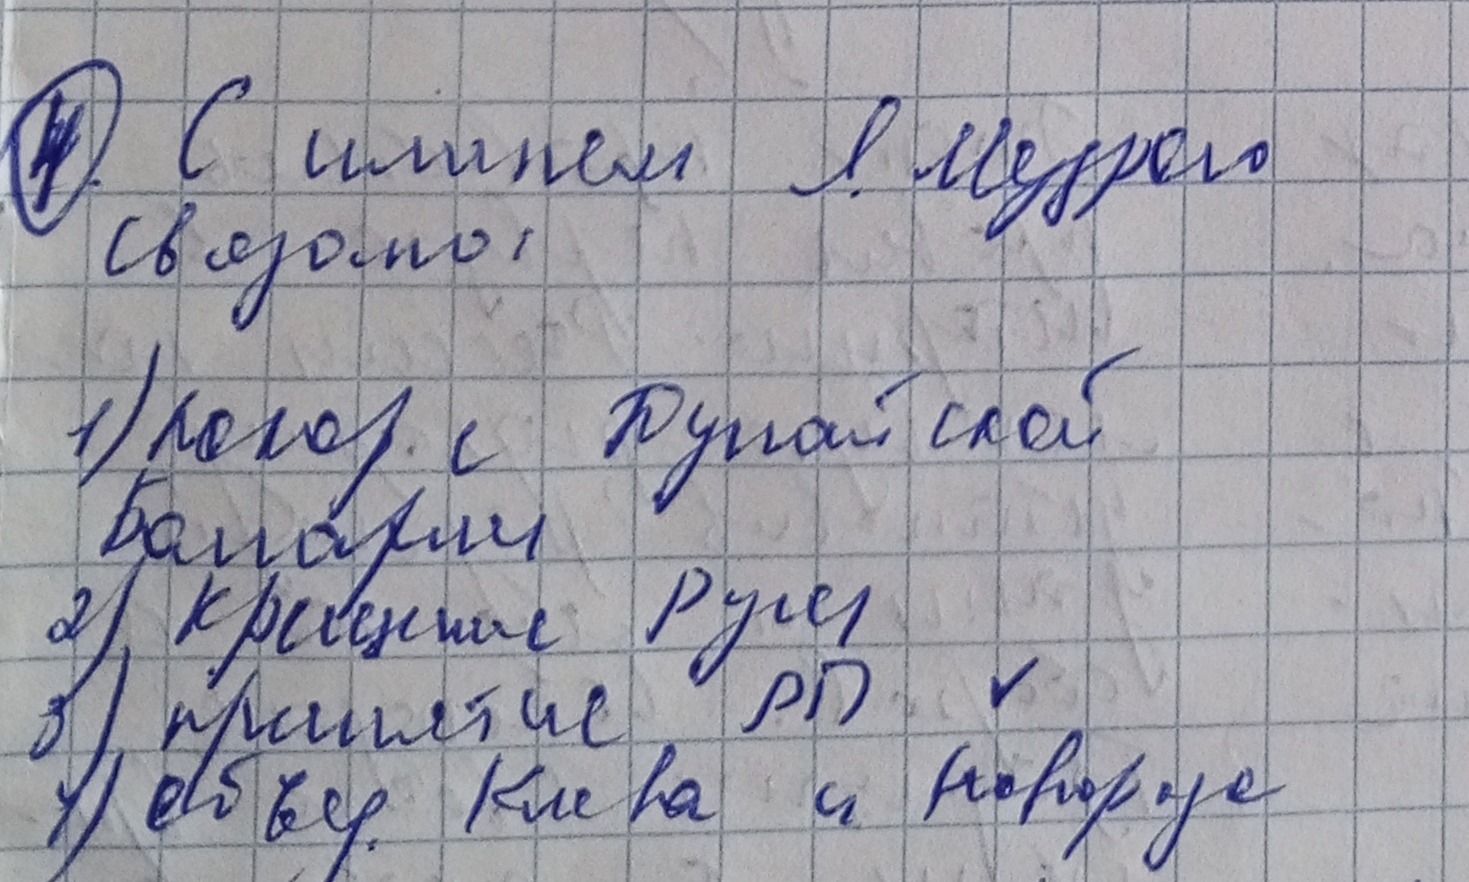 4. С именем Я. Мудрого
связано:
1) поход с Дунайской
Болгарии
2) крещение Руси
3) принятие РП ✓
4) объед. Киева и Новгорода